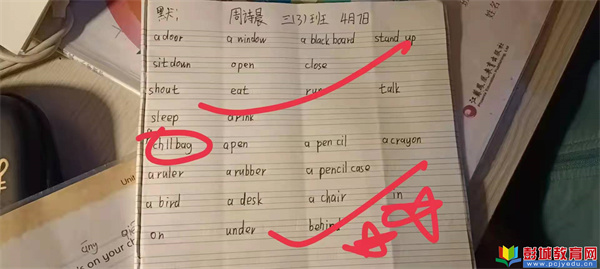 默: 周诗晨 三(3)班 4月7日
a door a window a blackboard stand up
sit down open close
shout eat run talk
sleep drink
a
chllbag a pen a pencil a crayon
a ruler a rubber a pencil case
a bird a desk a chair in
on under behind
Unit
any
s on your
彭城教育网
www.pcjyedu.cn